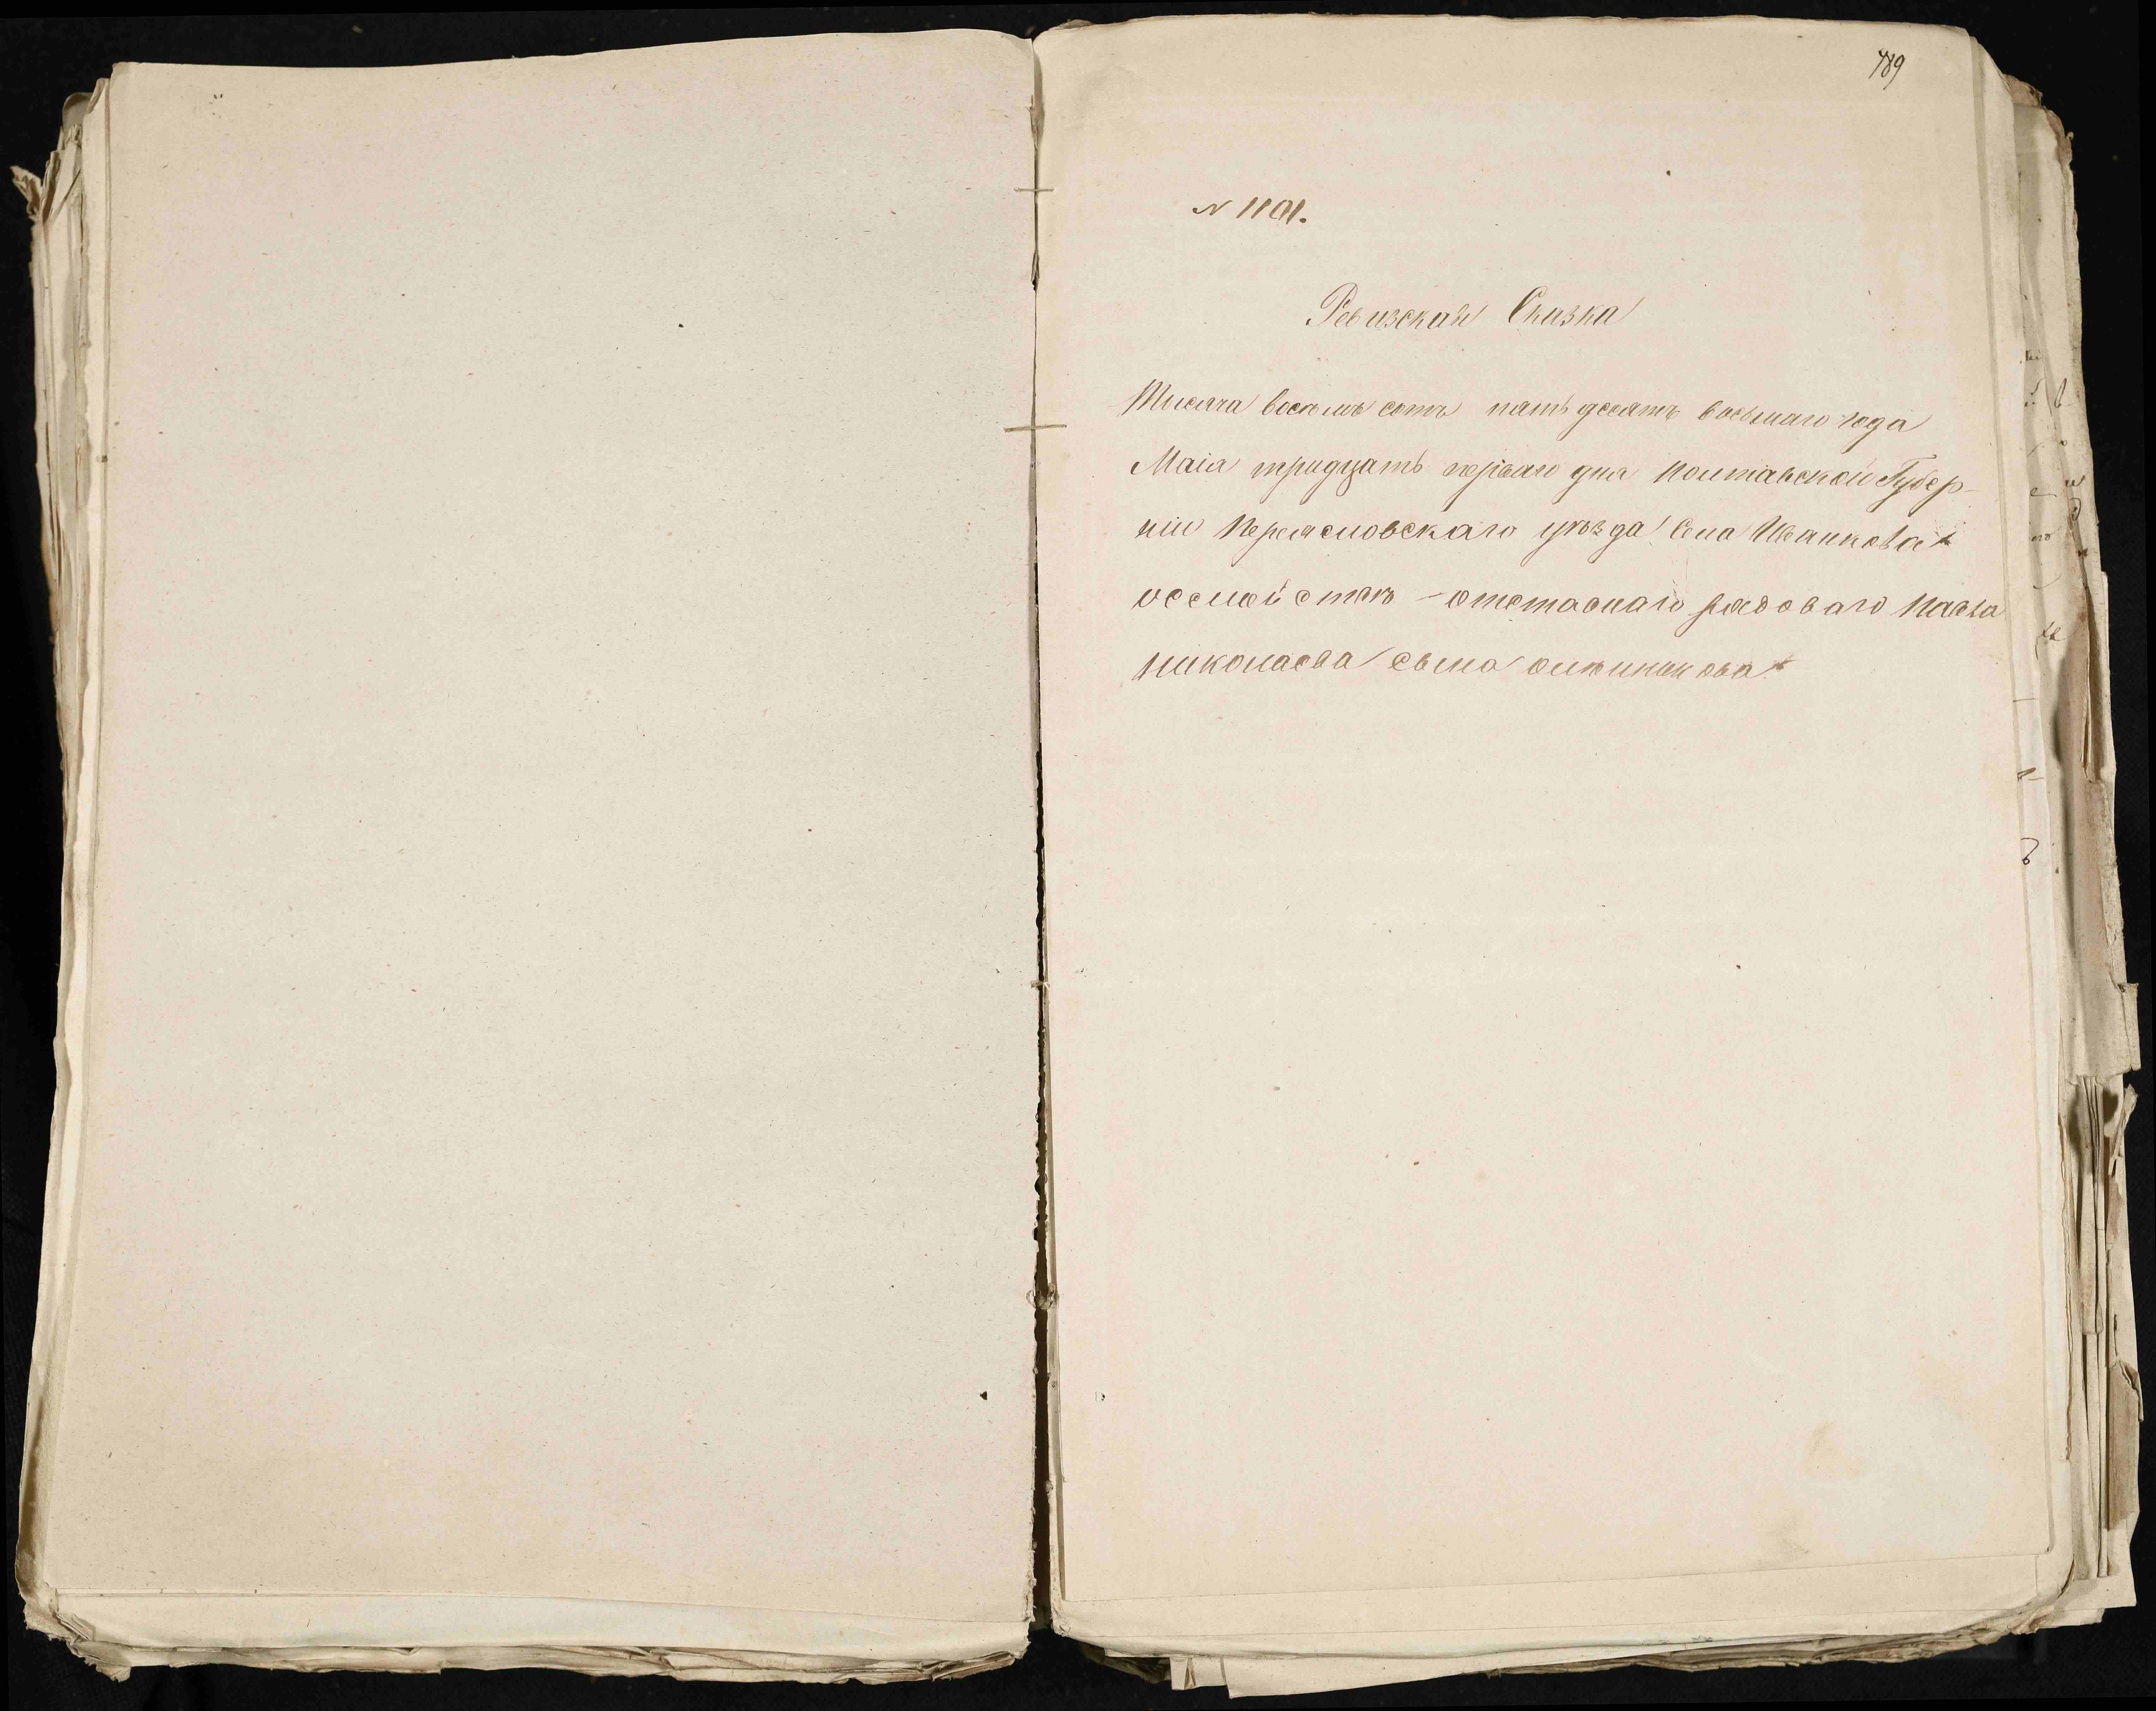 789
N 1101.
Ревизская Сказка
Тисяча восемъ сотъ пять десятъ восьмаго года
Маія тридцать перваго дня Полтавской Губер-
ніи Переясловскаго уѣзда Села Иванкова
о семействѣ отставнаго рядоваго Павла
Николаева сына